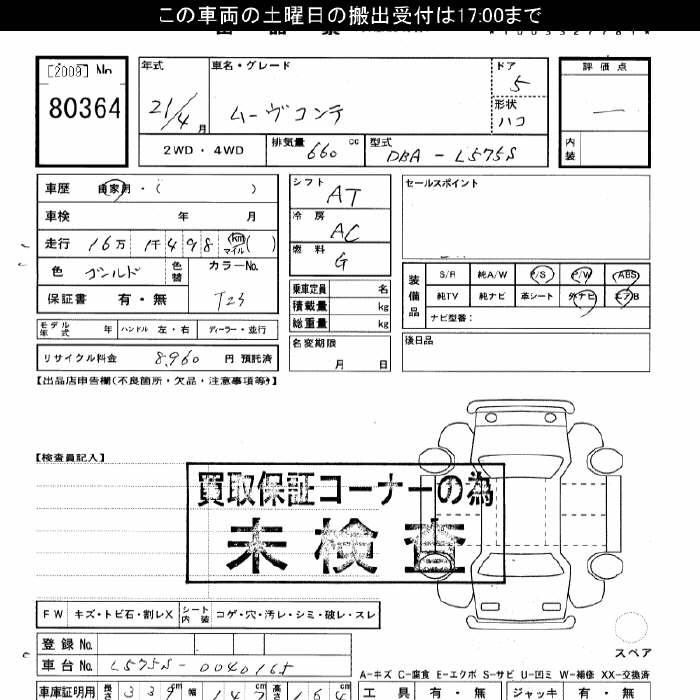 この車両の土曜日の搬出受付は17:00まで
[2009] No
80364
年式
21/4 月
車名・グレード
ムーヴコンテ
ドア
5
形状
ハコ
評価点
—
内装
2WD・4WD
排気量 660 cc
型式 DBA-L575S
車歴 自家用・( )
車検 年 月
走行 16万 1千 4 9 8 km マイル ( )
色 ゴールド
色替
カラーNo.
T23
保証書 有・無
モデル年式 年 ハンドル 左・右 ディーラー・並行
リサイクル料金 8,960 円 預託済
シフト AT
冷房 AC
燃料 G
乗車定員 名
積載量 kg
総重量 kg
名変期限
月 日
セールスポイント
装備品
S/R 純A/W P/S P/W ABS
純TV 純ナビ 革シート 外ナビ エアB
ナビ型番:
後日品
【出品店申告欄(不良箇所・欠品・注意事項等)】
【検査員記入】
買取保証コーナーの為
未検査
FW キズ・トビ石・割レX シート内装 コゲ・穴・汚レ・シミ・破レ・スレ
登録No.
車台No. L575S-0040165
スペア
A-キズ C-腐食 E-エクボ S-サビ U-凹ミ W-補修 XX-交換済
車庫証明用 長さ 339 cm 幅 147 高さ 164
工具 有・無 ジャッキ 有・無